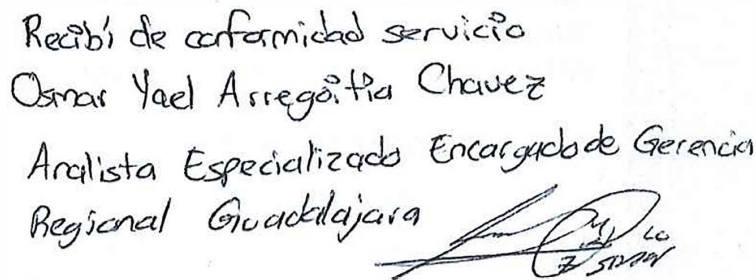 Recibí de conformidad servicio
Osmar Yael Arregoitia Chavez
Analista Especializado Encargado de Gerencia
Regional Guadalajara